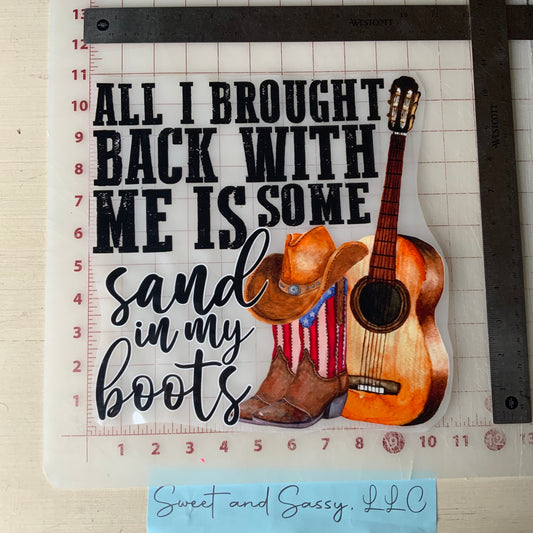 WESTCOTT
WESTCOTT
13
12
11
10
9
8
7
6
5
4
3
2
1
ALL I BROUGHT
BACK WITH
ME IS SOME
sand
in my
boots
1 2 3 4 5 6 7 8 9 10 11 12
Sweet and Sassy, LLC